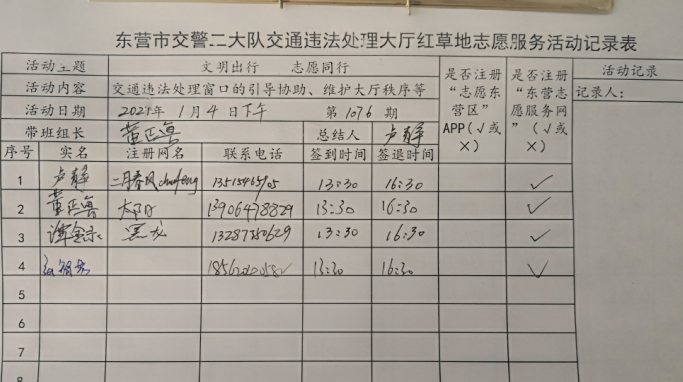 东营市交警二大队交通违法处理大厅红草地志愿服务活动记录表
活动主题 文明出行 志愿同行
活动内容 交通违法处理窗口的引导协助、维护大厅秩序等
活动日期 2021年1月4日下午 第1076期
带班组长 总结人 卢静
是否注册“志愿东营区”APP(√或×)
是否注册“东营志愿服务网”(√或×)
活动记录
记录人:
序号 实名 注册网名 联系电话 签到时间 签退时间
1 卢静 二月春风 13:30 16:30 √
2 太阳 13906478829 13:30 16:30 √
3 黑龙 13287780629 13:30 16:30 √
4 13:30 16:30 √
5
6
7
8